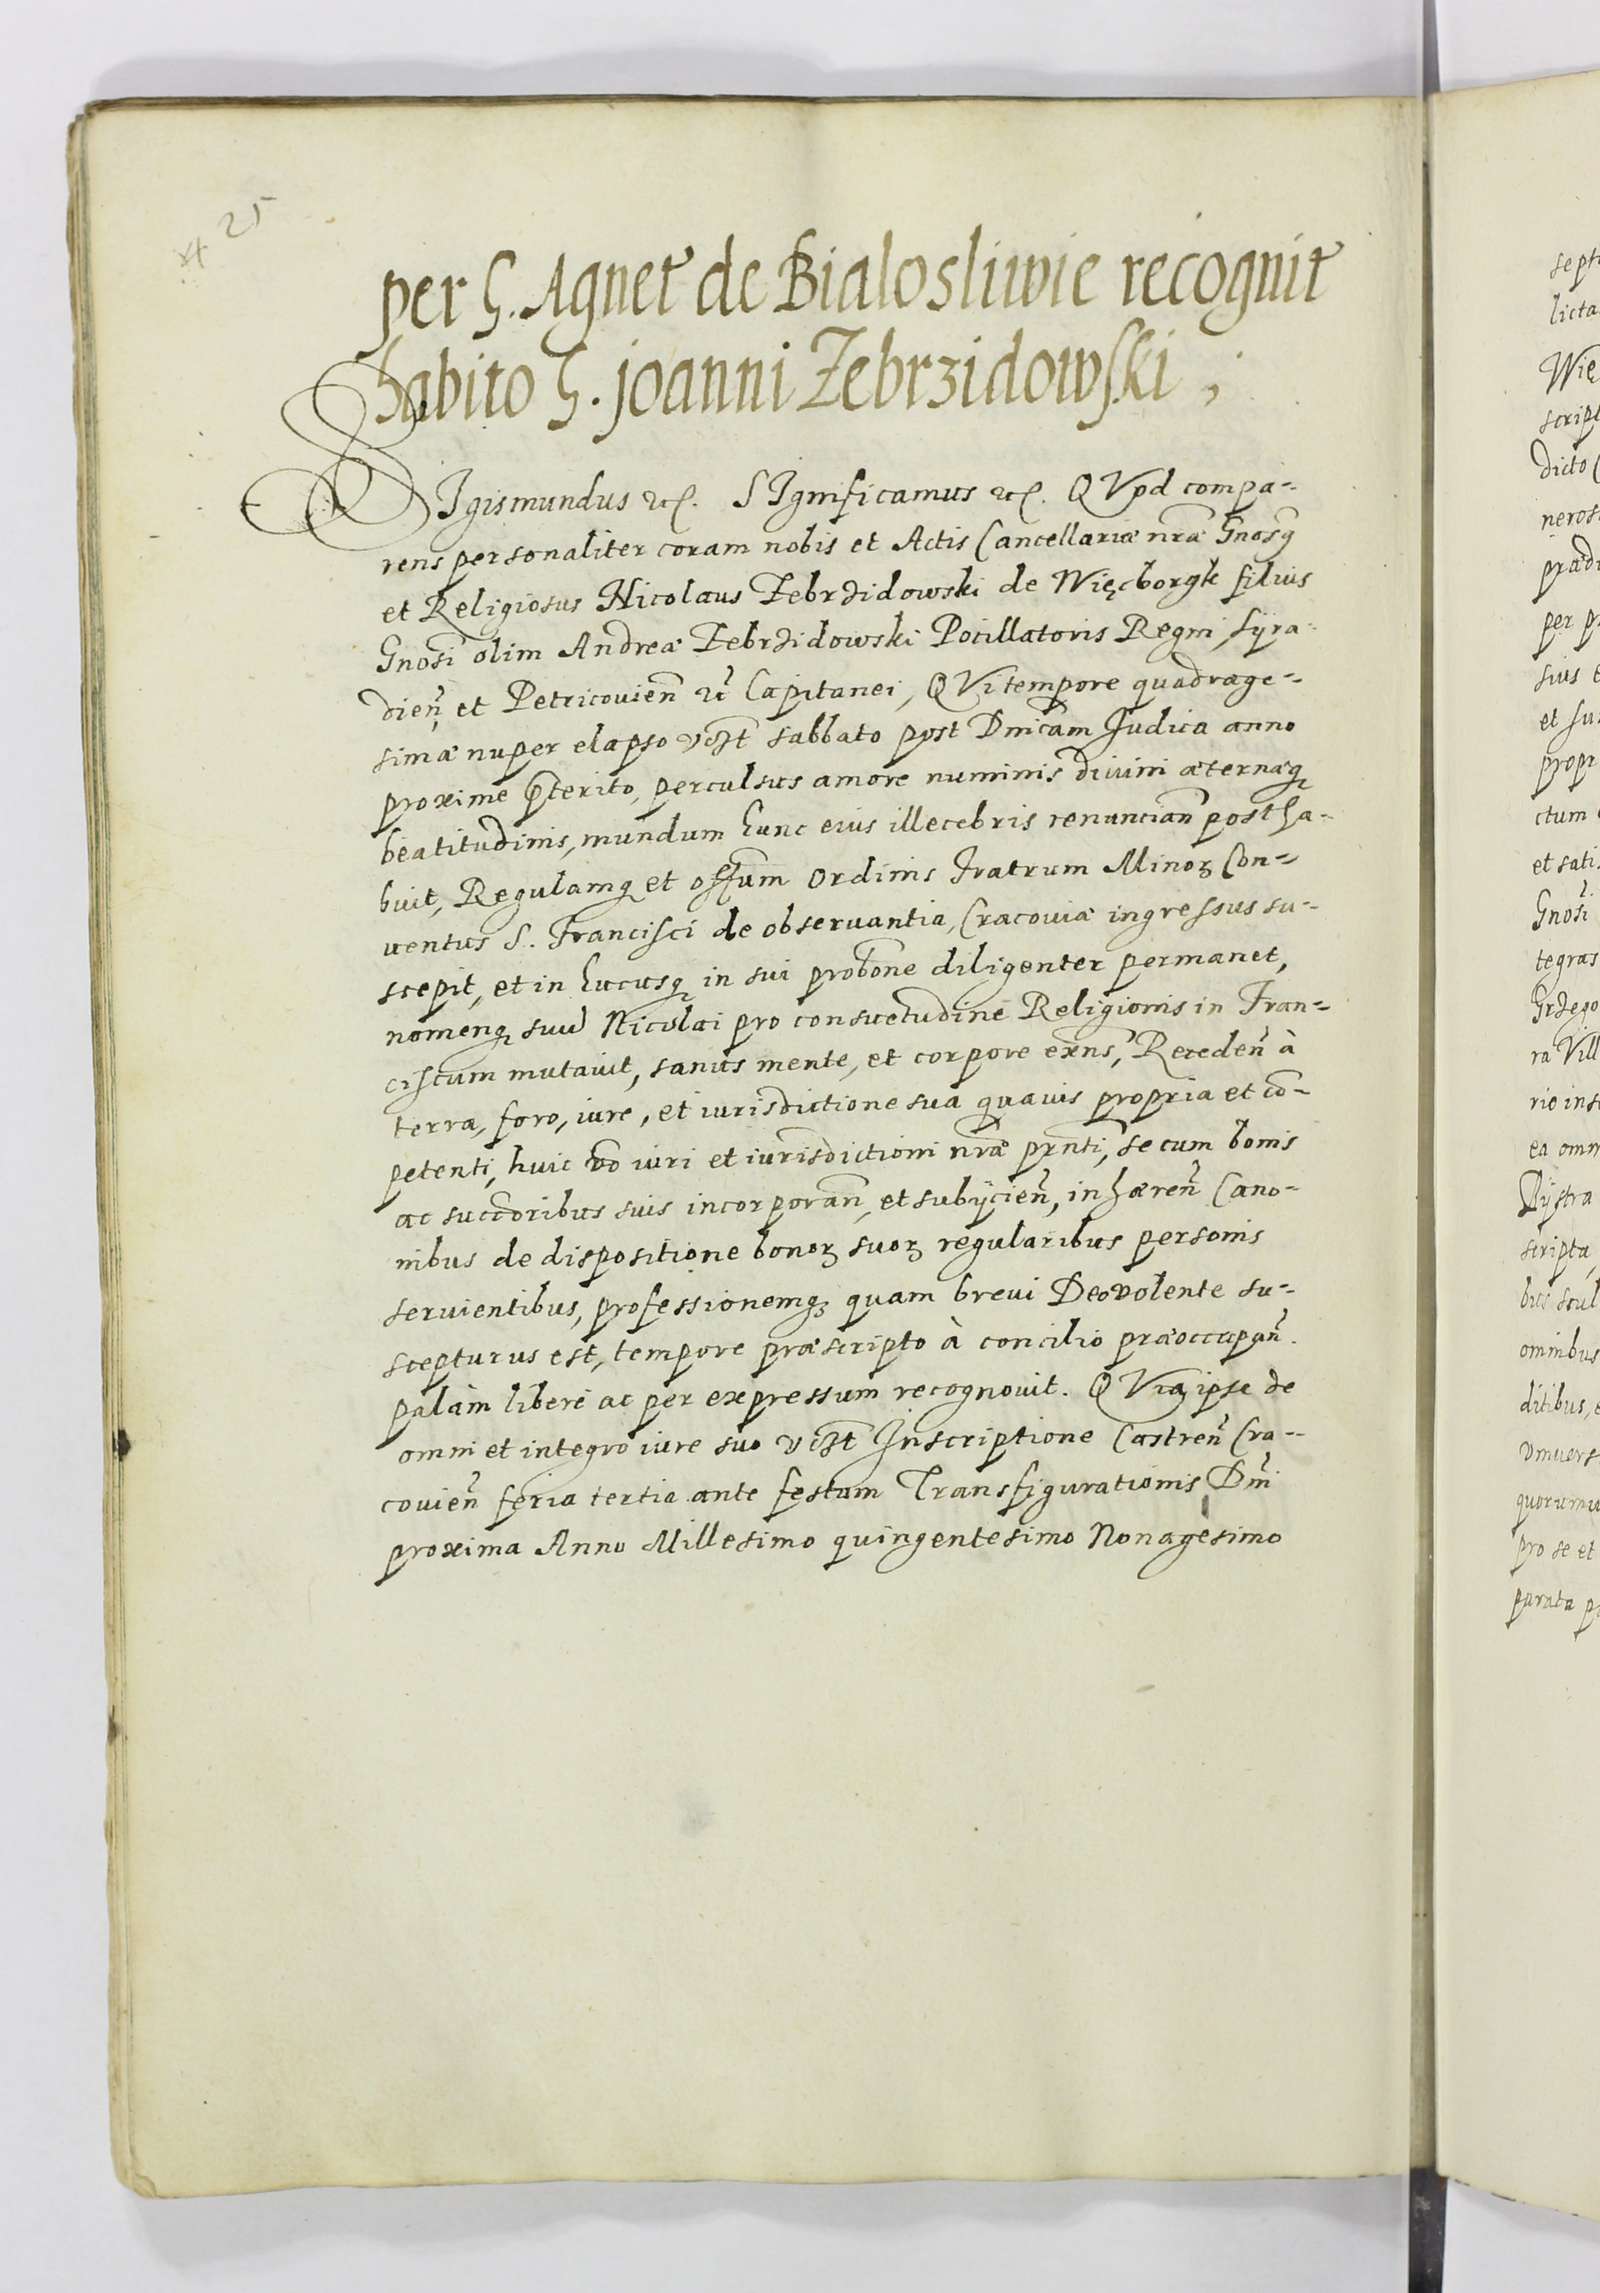 25
per G. Agnet de Bialosliwie recognit
habito G. Joanni Zebrzidowski,
SIgismundus etc. SIgnificamus etc. QVod compa=
rens personaliter coram nobis et Actis Cancellariæ nræ Gnosg
et Religiosus Nicolaus Zebrzidowski de Więcborgk filius
Gnosi olim Andreæ Zebrzidowski Pocillatoris Regni, Syra-
dien, et Petricouien etc Capitanei, QVi tempore quadrage=
simæ nuper elapso vczt sabbato post Dnicam Judica anno
proxime pterito, perculsus amore numinis diuini æternæq
beatitudinis, mundum hunc eius illecebris renuncian postha-
buit, Regulamq et offum Ordinis Fratrum Minoꝝ Con=
uentus S. Francisci de obseruantia, Cracouiæ ingressus su=
scepit, et in hucusq in sui probone diligenter permanet,
nomenq suu Nicolai pro consuetudine Religionis in Fran=
ciscum mutauit, sanus mente, et corpore exns, Receden à
terra, foro, iure, et iurisdictione sua quauis propria et co-
petenti, huic vo iuri et iurisdictioni nræ prnti, se cum bonis
ac succoribus suis incorporan, et subijcien, inhæren Cano-
nibus de dispositione bonoꝝ suoꝝ regularibus personis
seruientibus, professionemq quam breui Deo volente su=
scepturus est, tempore præscripto à concilio præoccupan.
palàm liberè ac per expressum recognouit. QVia ipse de
omni et integro iure suo vczt Inscriptione Castren Cra=
couien feria tertia ante festum Transfigurationis Dni
proxima Anno Millesimo quingentesimo Nonagesimo
licta
Wię
script
dicto
neros
prædi
per pr
suis e
et su
propr
ctum
et sati
Gnosi
tegras
Grzego
ra Vill
rio ins
ea omn
Bystra
scripta,
bus scul
omnibus
ditibus, e
vniuers
quorumu
pro se et
parata p